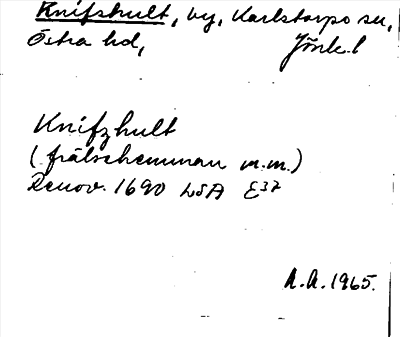 Knifshult, by, Karlstorps sn,
Östra hd, Jönk.l
Knifzhult
(frälsehemman m.m.)
Renov. 1690 LSA E37
A.A. 1965.